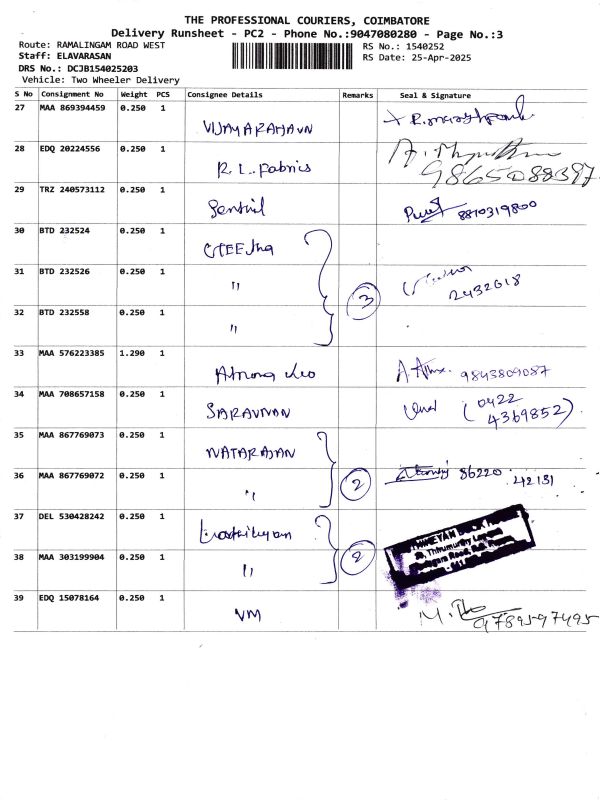 THE PROFESSIONAL COURIERS, COIMBATORE
Delivery Runsheet - PC2 - Phone No.:9047080280 - Page No.:3
Route: RAMALINGAM ROAD WEST
Staff: ELAVARASAN
DRS No.: DCJB154025203
Vehicle: Two Wheeler Delivery
RS No.: 1540252
RS Date: 25-Apr-2025
S No Consignment No Weight PCS Consignee Details Remarks Seal & Signature
27 MAA 869394459 0.250 1
28 EDQ 20224556 0.250 1 R.L. Fabrics 9865088397
29 TRZ 240573112 0.250 1 Senthil 8810319800
30 BTD 232524 0.250 1
31 BTD 232526 0.250 1 " 3 2432618
32 BTD 232558 0.250 1 "
33 MAA 576223385 1.290 1 9843809087
34 MAA 708657158 0.250 1 SARAVNAN (0422
4369852)
35 MAA 867769073 0.250 1 NATARAJAN
36 MAA 867769072 0.250 1 " 2 86220 42131
37 DEL 530428242 0.250 1
38 MAA 303199904 0.250 1 " 2 Thirumurthy
39 EDQ 15078164 0.250 1 VM 9789597495